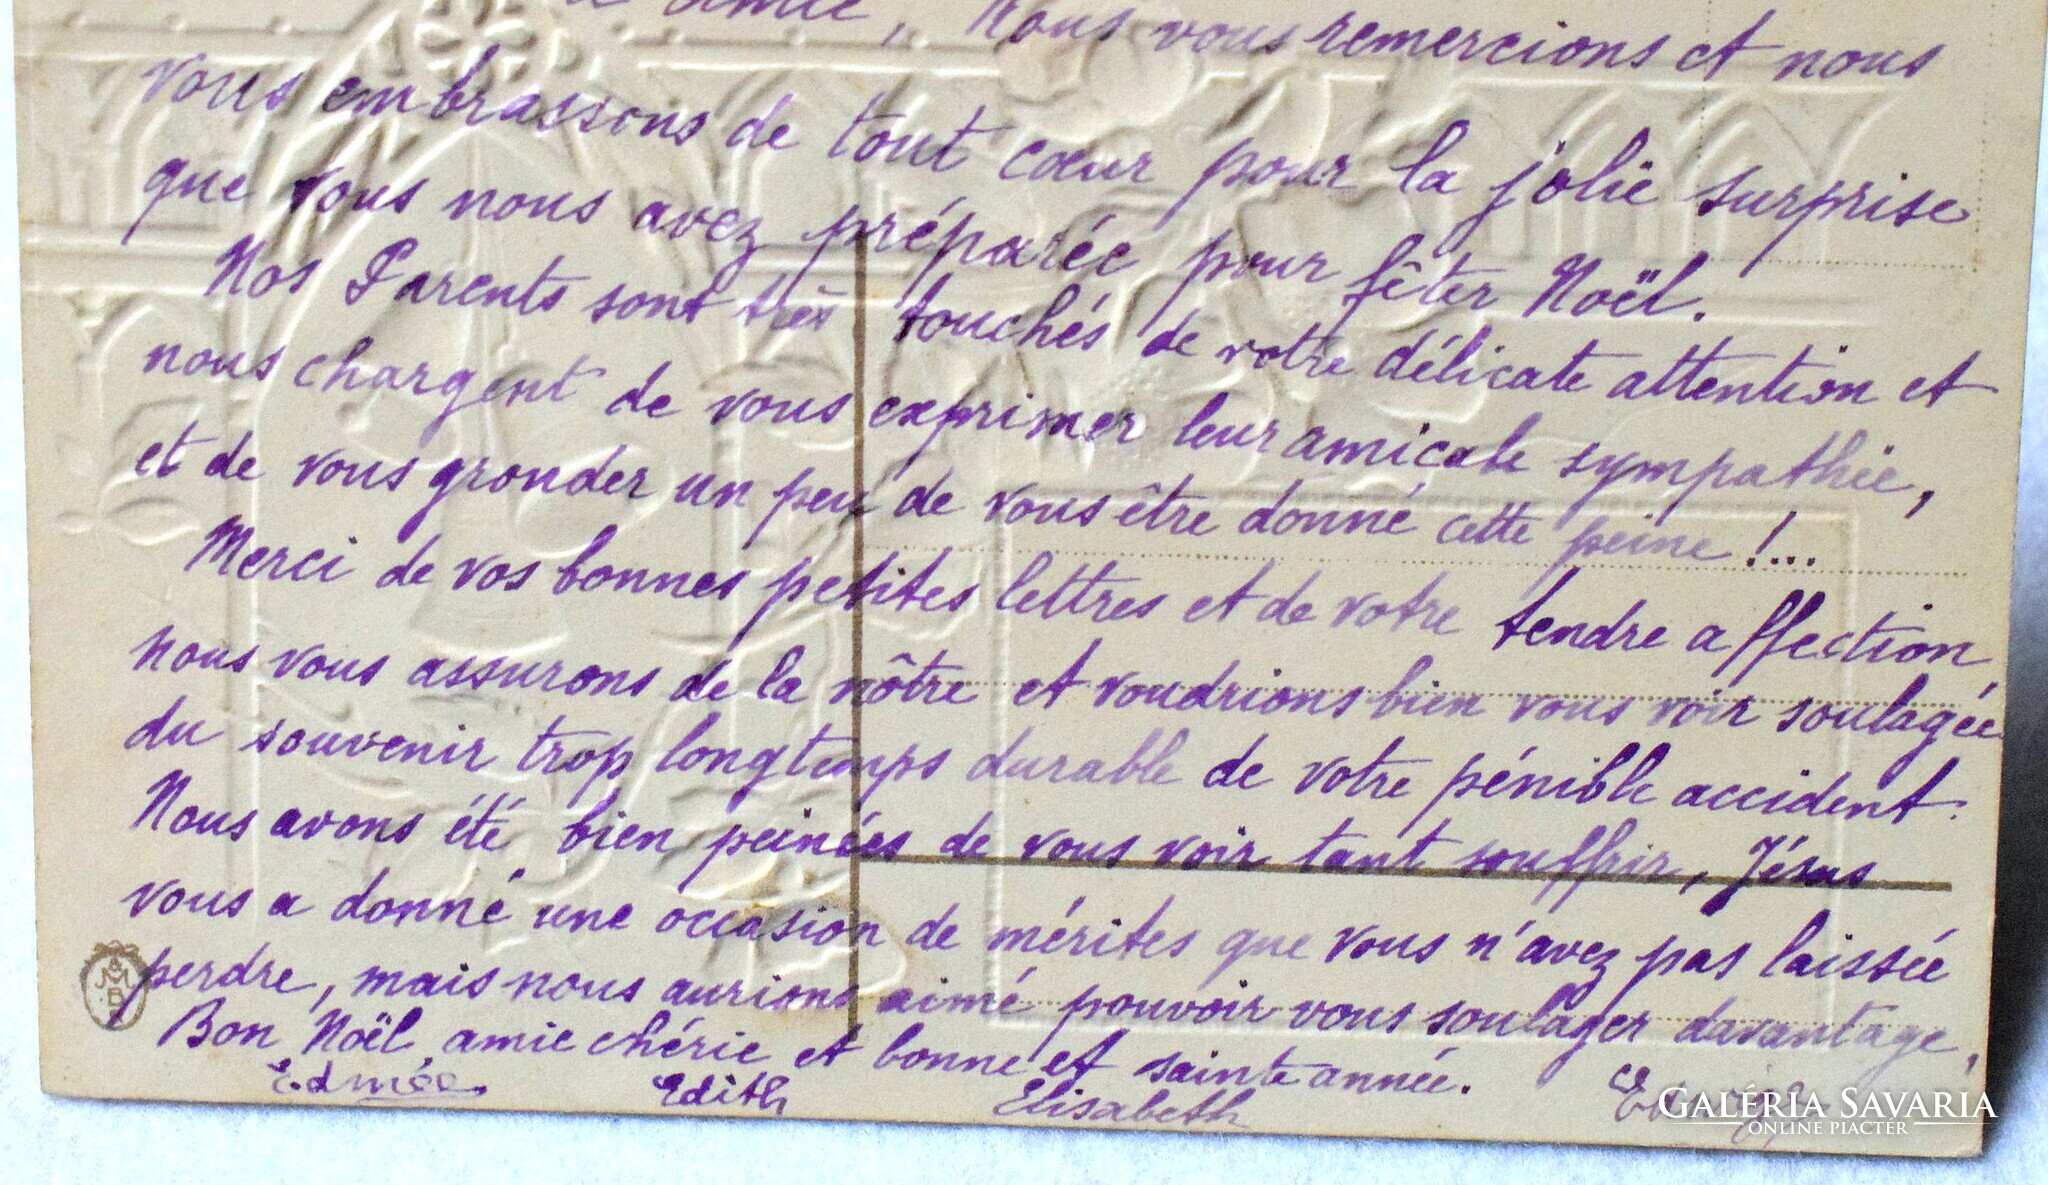 amie, Nous vous remercions et nous
vous embrassons de tout cœur pour la jolie surprise
que vous nous avez préparée pour fêter Noël.
Nos Parents sont très touchés de votre délicate attention et
nous chargent de vous exprimer leur amicale sympathie,
et de vous gronder un peu de vous être donné cette peine !...
Merci de vos bonnes petites lettres et de votre tendre affection
nous vous assurons de la nôtre et voudrions bien vous voir soulagée
du souvenir trop longtemps durable de votre pénible accident.
Nous avons été bien peinées de vous voir tant souffrir, Jésus
vous a donné une occasion de mérites que vous n'avez pas laissée
perdre, mais nous aurions aimé pouvoir vous soulager davantage.
Bon Noël, amie chérie et bonne et sainte année.
Edmée Edith Elisabeth
GALÉRIA SAVARIA
ONLINE PIACTÉR